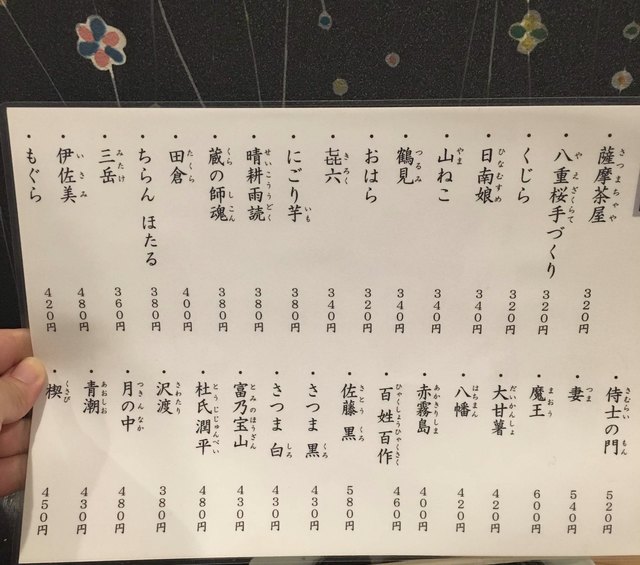 ・薩摩茶屋 さつまちゃや 320円
・八重桜手づくり やえざくらて 320円
・くじら 320円
・日南娘 ひなむすめ 340円
・山ねこ やま 340円
・鶴見 つるみ 340円
・おはら 320円
・㐂六 きろく 340円
・にごり芋 いも 380円
・晴耕雨読 せいこううどく 380円
・蔵の師魂 くらしこん 380円
・田倉 たくら 400円
・ちらん ほたる 380円
・三岳 みたけ 360円
・伊佐美 いさみ 480円
・もぐら 420円
・侍士の門 さむらいもん 520円
・妻 つま 540円
・魔王 まおう 600円
・大甘薯 だいかんしょ 420円
・八幡 はちまん 420円
・赤霧島 あかきりしま 400円
・百姓百作 ひゃくしょうひゃくさく 460円
・佐藤 黒 さとう くろ 580円
・さつま 黒 くろ 430円
・さつま 白 しろ 430円
・富乃宝山 とみのほうざん 430円
・杜氏潤平 とうじじゅんぺい 480円
・沢渡 さわたり 380円
・月の中 つきんなか 480円
・青潮 あおしお 430円
・楔 くさび 450円